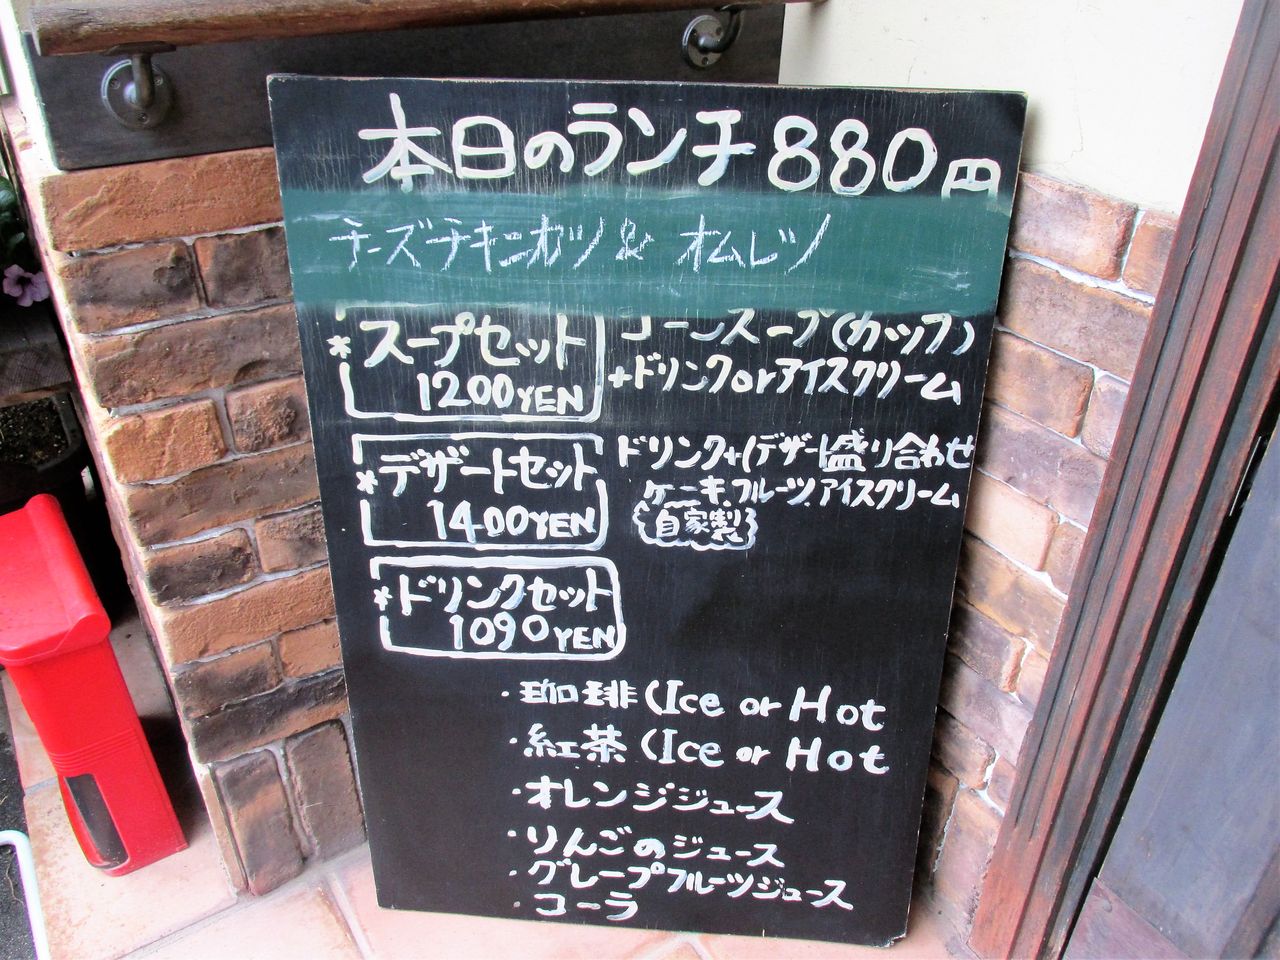 本日のランチ880円
チーズチキンカツ & オムレツ
*スープセット
1200YEN
コーンスープ(カップ)
+ドリンクorアイスクリーム
*デザートセット
1400YEN
ドリンク+(デザート盛り合わせ
ケーキ、フルーツ、アイスクリーム
自家製
*ドリンクセット
1090YEN
・珈琲(Ice or Hot
・紅茶(Ice or Hot
・オレンジジュース
・りんごのジュース
・グレープフルーツジュース
・コーラ